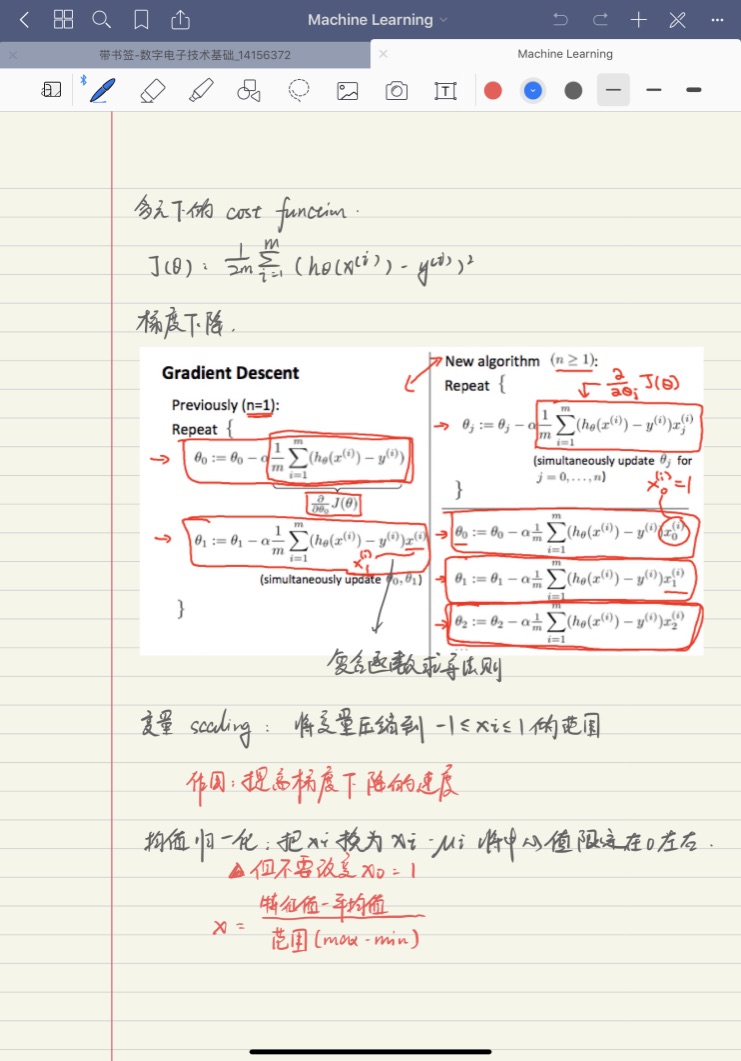 Machine Learning
带书签-数字电子技术基础_14156372
Machine Learning
多元下的 cost function.
J(θ): 1/2m ∑ i=1 m (hθ(x^(i)) - y^(i))²
梯度下降.
Gradient Descent
Previously (n=1):
Repeat {
θ₀ := θ₀ − α 1/m ∑ i=1 m (hθ(x^(i)) − y^(i))
∂/∂θ₀ J(θ)
θ₁ := θ₁ − α 1/m ∑ i=1 m (hθ(x^(i)) − y^(i))x^(i)
x₁^(i)
(simultaneously update θ₀, θ₁)
}
New algorithm (n ≥ 1):
Repeat {
∂/∂θj J(θ)
θj := θj − α 1/m ∑ i=1 m (hθ(x^(i)) − y^(i))xj^(i)
(simultaneously update θj for
j = 0, . . . , n)
x₀^(i) = 1
}
θ₀ := θ₀ − α 1/m ∑ i=1 m (hθ(x^(i)) − y^(i))x₀^(i)
θ₁ := θ₁ − α 1/m ∑ i=1 m (hθ(x^(i)) − y^(i))x₁^(i)
θ₂ := θ₂ − α 1/m ∑ i=1 m (hθ(x^(i)) − y^(i))x₂^(i)
...
复合函数求导法则
变量 scaling: 将变量压缩到 -1≤xi≤1 的范围
作用:提高梯度下降的速度
均值归一化:把xi换为xi-μi 将中心值限定在0左右.
△但不要改变x₀=1
x = 特征值-平均值 / 范围(max-min)